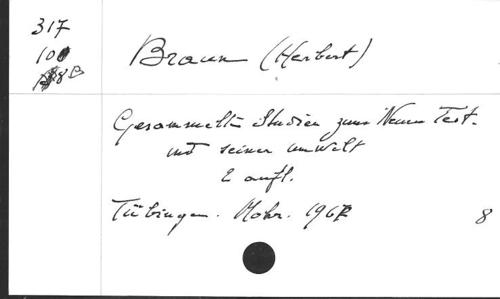 317
100
Braun (Herbert)
Gesammelte Studien zum Neuen Test.
und seiner umwelt
2 aufl.
Tübingen. Mohr. 1967 8